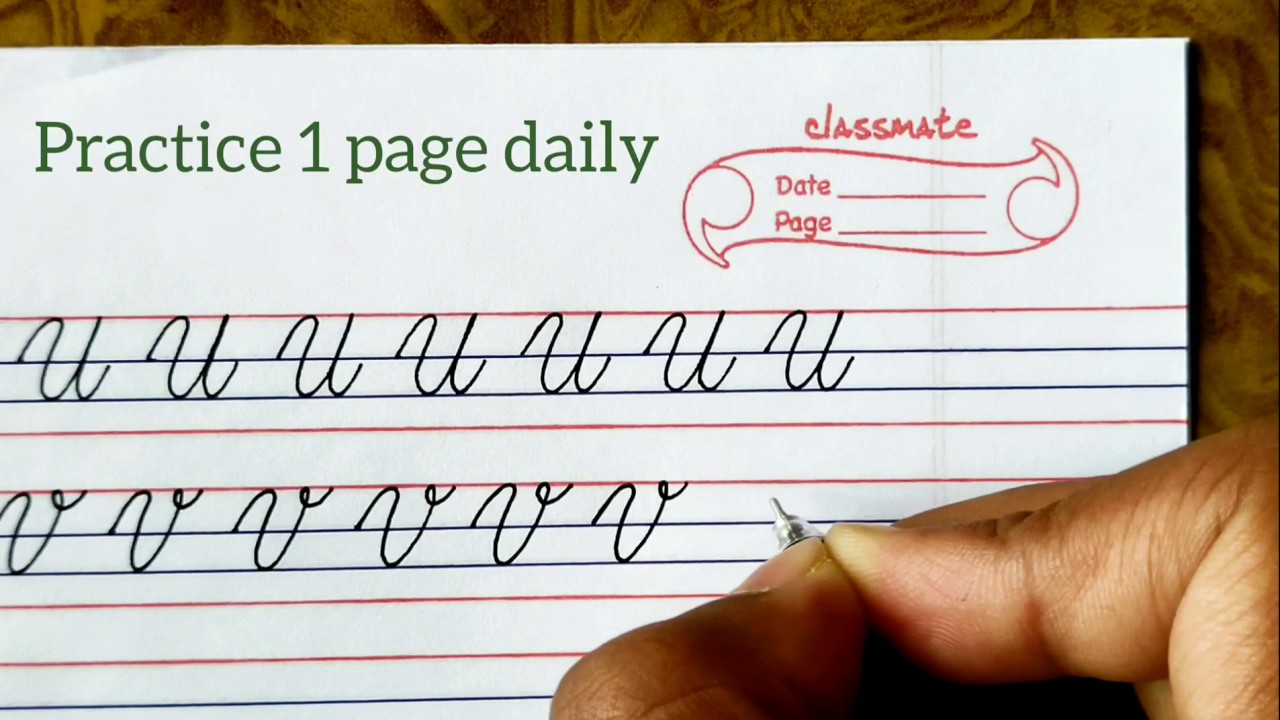 Practice 1 page daily
classmate
Date
Page
U U U U U U U
V V V V V V